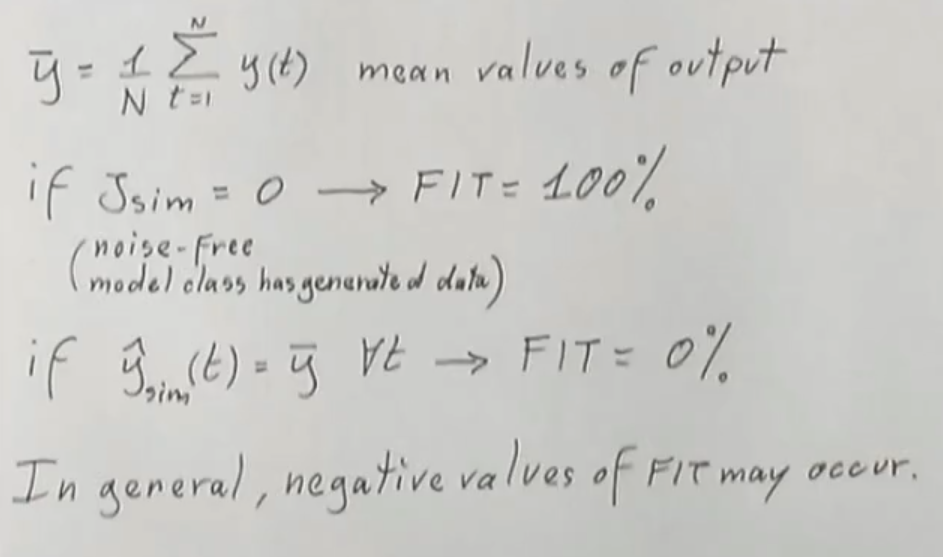 ȳ = 1/N ∑_{t=1}^{N} y(t) mean values of output
if J_sim = 0 → FIT = 100%
(noise-free
model class has generated data)
if ŷ_sim(t) = ȳ ∀t → FIT = 0%
In general, negative values of FIT may occur.